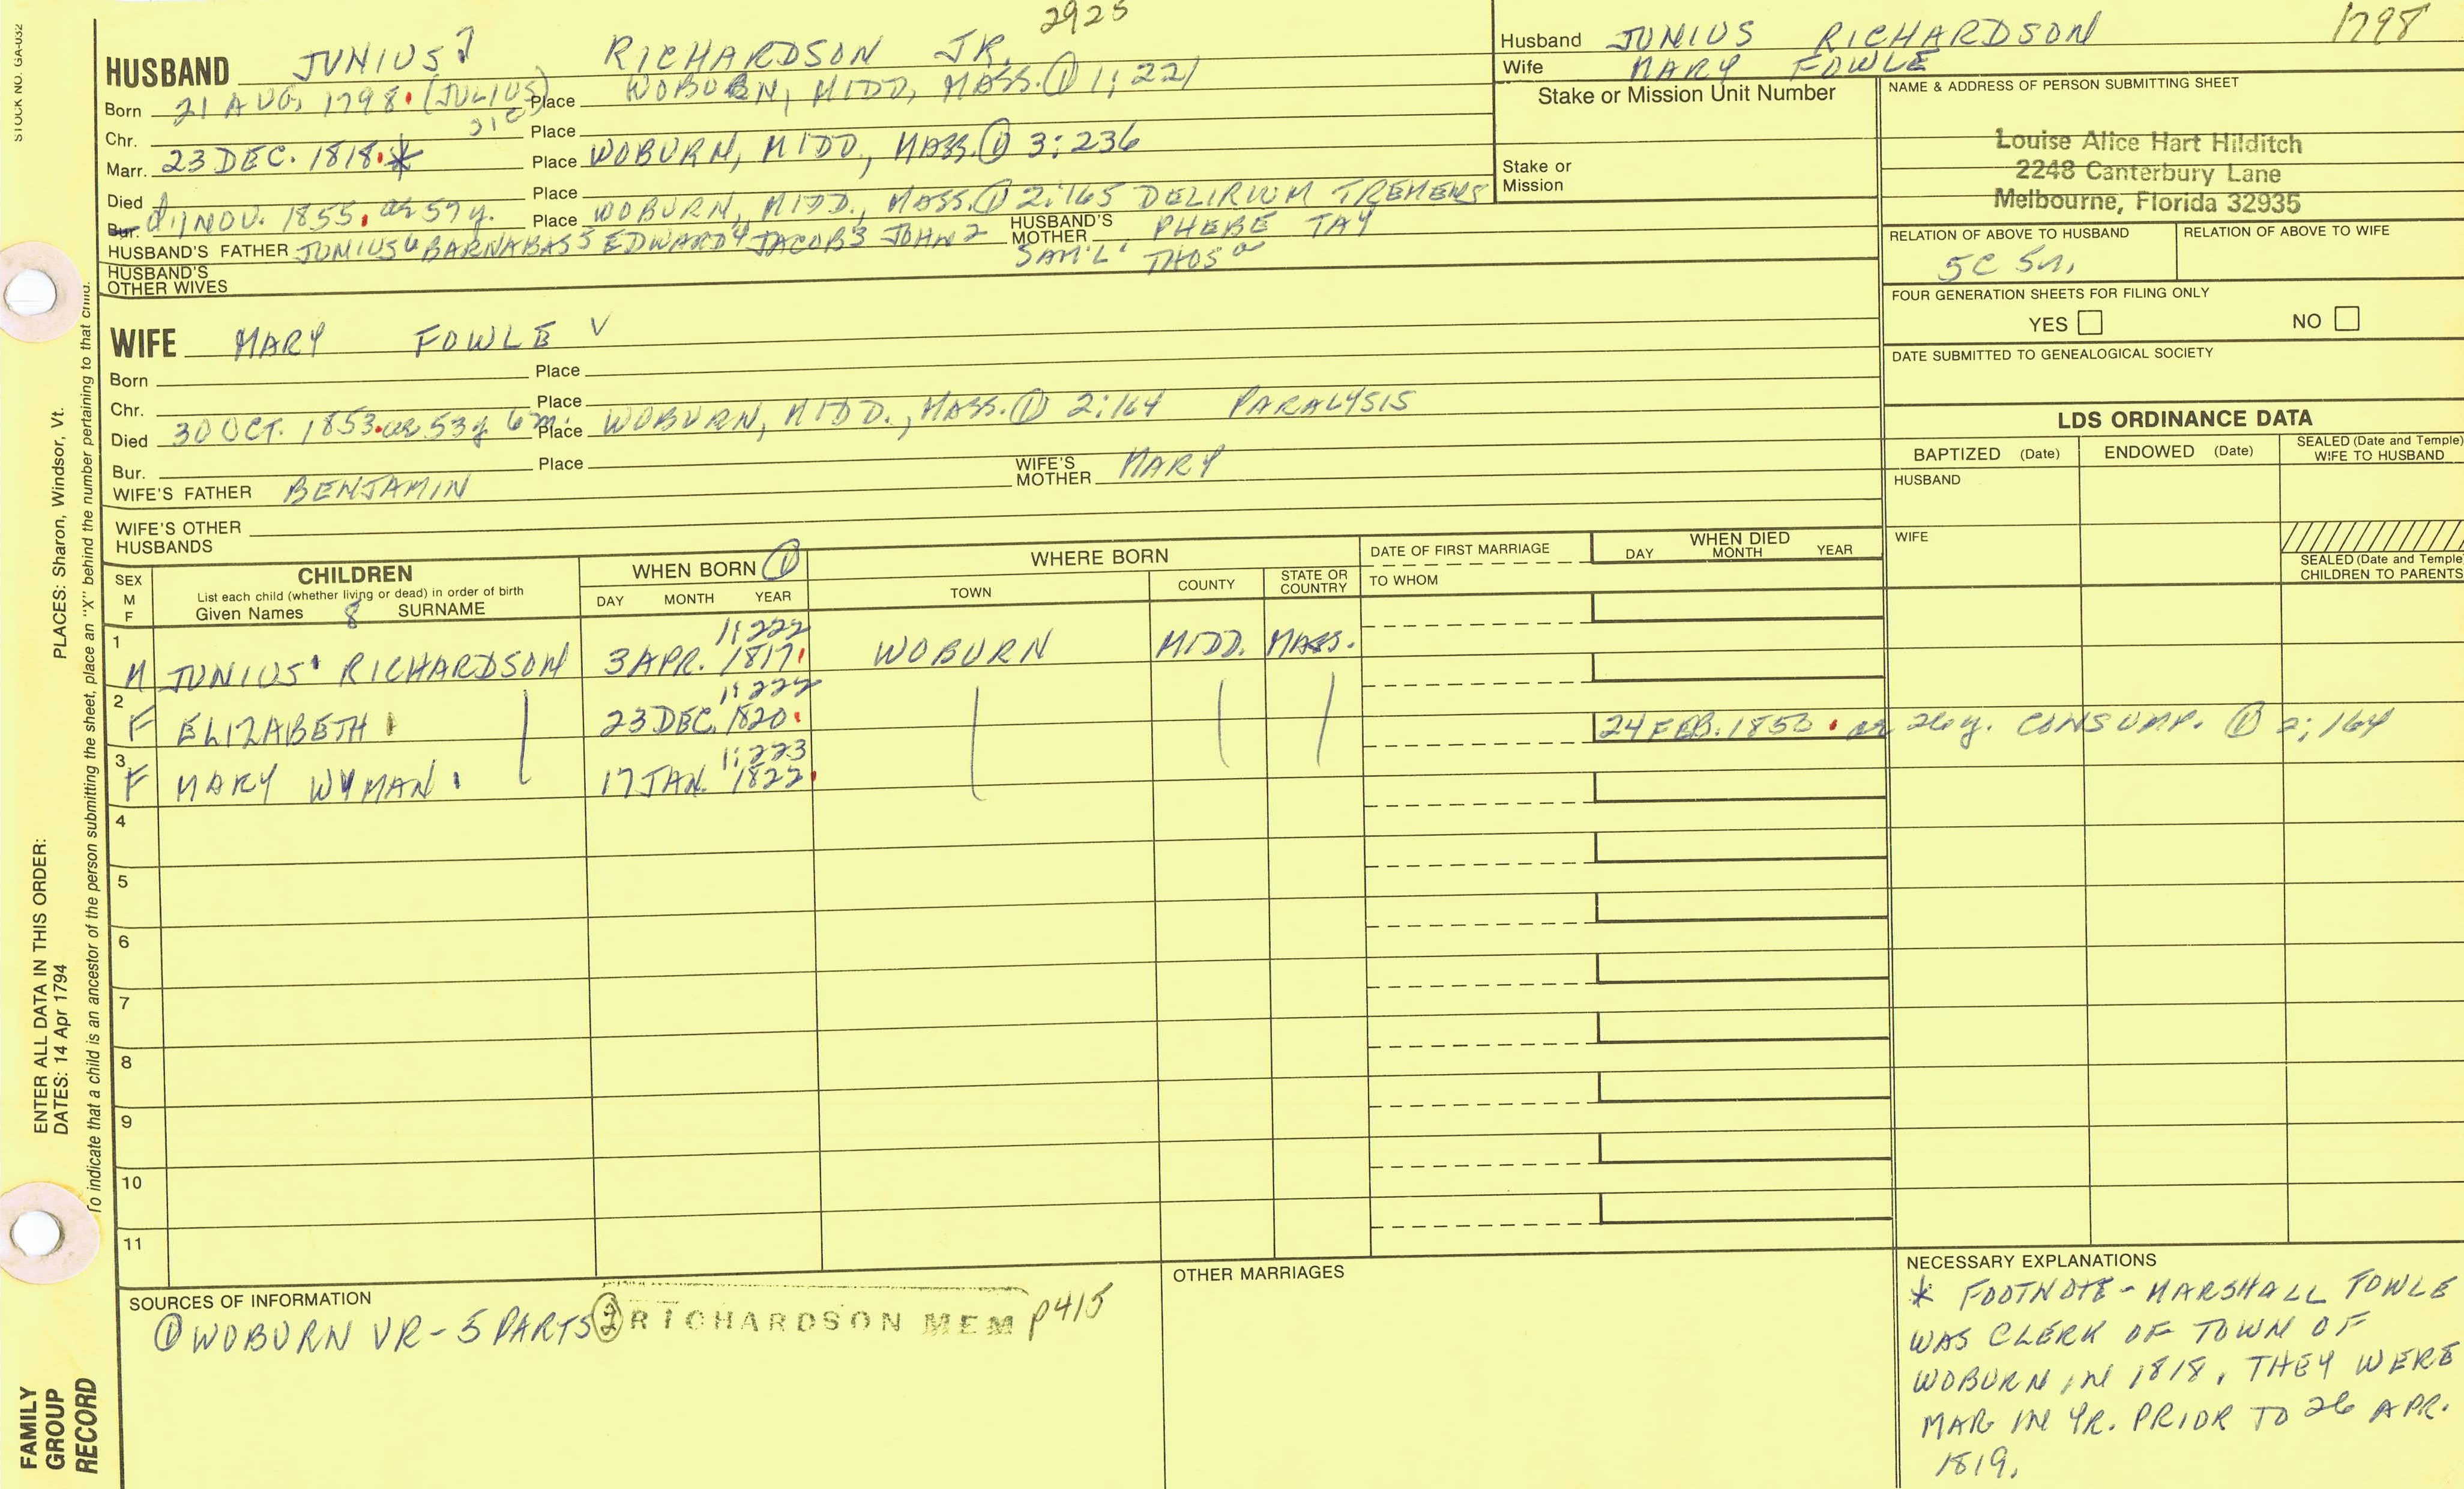 2925
STOCK NO. GA-032
HUSBAND JUNIUS 7 RICHARDSON JR.
Born 21 AUG, 1798. (JULIUS) Place WOBURN, MIDD, MASS. ① 1; 221
sic
Chr. Place
Marr. 23 DEC. 1818.* Place WOBURN, MIDD., MASS. ① 3:236
Died Place
Bur. d. 1 NOV. 1855. ae 59 y. Place WOBURN, MIDD., MASS. ① 2:165 DELIRIUM TREMENS
HUSBAND'S FATHER JUNIUS 6 BARNABAS 5 EDWARD 4 JACOB 3 JOHN 2 HUSBAND'S MOTHER PHEBE TAY
SAM'L 1 THOS a
HUSBAND'S OTHER WIVES
Husband JUNIUS RICHARDSON 1798
Wife MARY FOWLE
Stake or Mission Unit Number
Stake or Mission
NAME & ADDRESS OF PERSON SUBMITTING SHEET
Louise Alice Hart Hilditch
2248 Canterbury Lane
Melbourne, Florida 32935
RELATION OF ABOVE TO HUSBAND RELATION OF ABOVE TO WIFE
5C 5r.
FOUR GENERATION SHEETS FOR FILING ONLY
YES NO
DATE SUBMITTED TO GENEALOGICAL SOCIETY
WIFE MARY FOWLE V
Born Place
Chr. Place
Died 30 OCT. 1853. ae 53 y 6 m. Place WOBURN, MIDD., MASS. ① 2:164 PARALYSIS
Bur. Place
WIFE'S FATHER BENJAMIN WIFE'S MOTHER MARY
WIFE'S OTHER HUSBANDS
LDS ORDINANCE DATA
BAPTIZED (Date) ENDOWED (Date) SEALED (Date and Temple) WIFE TO HUSBAND
HUSBAND
WIFE
SEALED (Date and Temple) CHILDREN TO PARENTS
SEX M F
CHILDREN
List each child (whether living or dead) in order of birth
Given Names 8 SURNAME
WHEN BORN ①
DAY MONTH YEAR
WHERE BORN
TOWN COUNTY STATE OR COUNTRY
DATE OF FIRST MARRIAGE
TO WHOM
WHEN DIED
DAY MONTH YEAR
1 1:222
M JUNIUS RICHARDSON 3 APR. 1817. WOBURN MIDD. MASS.
2 1:222
F ELIZABETH 23 DEC. 1820. 24 FEB. 1853. ae 26 y. CONSUMP. ① 2:164
3 1:223
F MARY WYMAN 17 JAN. 1822.
4
5
6
7
8
9
10
11
SOURCES OF INFORMATION
① WOBURN VR - 5 PARTS ② RICHARDSON MEM p415
OTHER MARRIAGES
NECESSARY EXPLANATIONS
* FOOTNOTE - MARSHALL FOWLE
WAS CLERK OF TOWN OF
WOBURN IN 1818, THEY WERE
MAR IN YR. PRIOR TO 26 APR.
1819.
ENTER ALL DATA IN THIS ORDER:
DATES: 14 Apr 1794 PLACES: Sharon, Windsor, Vt.
To indicate that a child is an ancestor of the person submitting the sheet, place an "X" behind the number pertaining to that child.
FAMILY
GROUP
RECORD